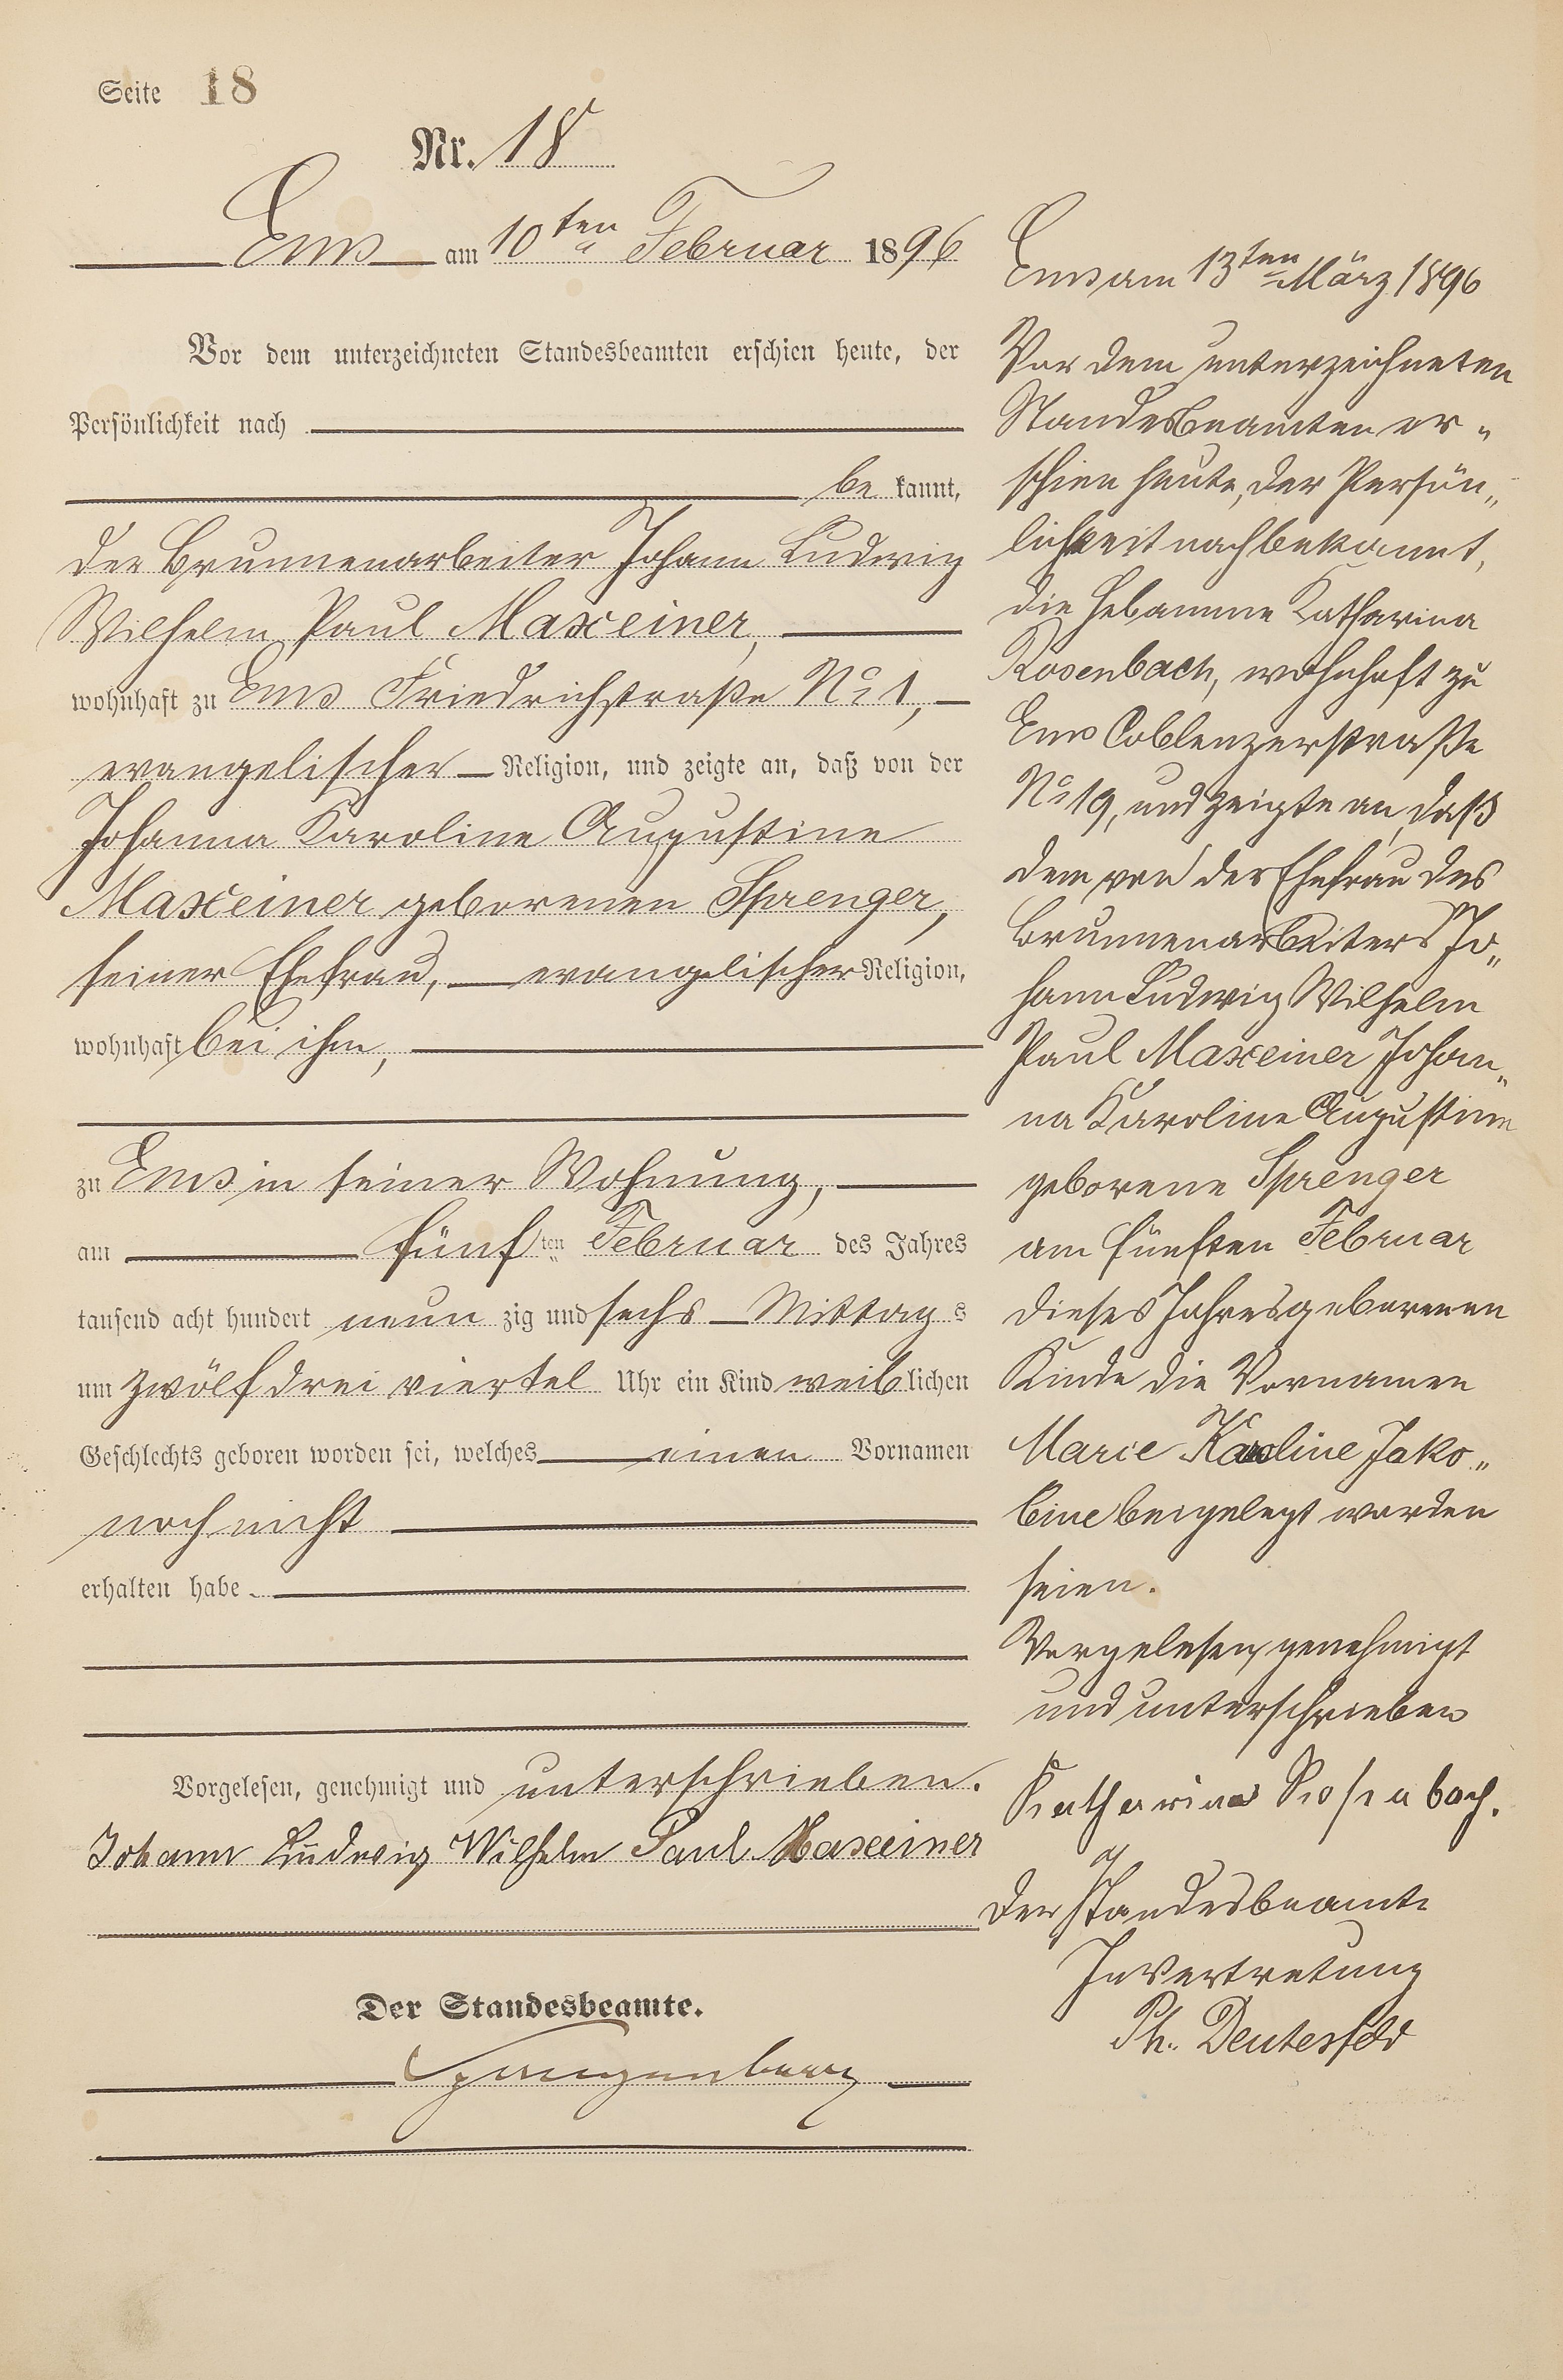 Seite 18
Nr. 18
Ems am 10ten Februar 1896
Vor dem unterzeichneten Standesbeamten erschien heute, der
Persönlichkeit nach
be kannt,
der Brunnenarbeiter Johann Ludwig
Wilhelm Paul Maxeiner,
wohnhaft zu Ems Friedrichstraße No 1,
evangelischer Religion, und zeigte an, daß von der
Johanna Karoline Augustine
Maxeiner geborenen Sprenger,
seiner Ehefrau, evangelischer Religion,
wohnhaft bei ihm,
zu Ems in seiner Wohnung,
am fünften Februar des Jahres
tausend acht hundert neun zig und sechs Mittag s
um zwölf drei viertel Uhr ein Kind weib lichen
Geschlechts geboren worden sei, welches einen Vornamen
noch nicht
erhalten habe
Vorgelesen, genehmigt und unterschrieben.
Johann Ludwig Wilhelm Paul Maxeiner
Der Standesbeamte.
Spangenberg
Ems am 13ten März 1896
Vor dem unterzeichneten
Standesbeamten er„
schien heute, der Persön„
lichkeit nach bekannt,
die Hebamme Katharina
Rosenbach, wohnhaft zu
Ems Coblenzerstraße
No 19, und zeigte an, daß
dem von der Ehefrau des
Brunnenarbeiters Jo„
hann Ludwig Wilhelm
Paul Maxeiner Johan„
na Karoline Augustine
geborene Sprenger
am fünften Februar
dieses Jahres geborenen
Kinde die Vornamen
Marie Karoline Jako„
bine beigelegt worden
seien.
Vorgelesen, genehmigt
und unterschrieben
Katharina Rosenbach.
Der Standesbeamte
In Vertretung
Ph.